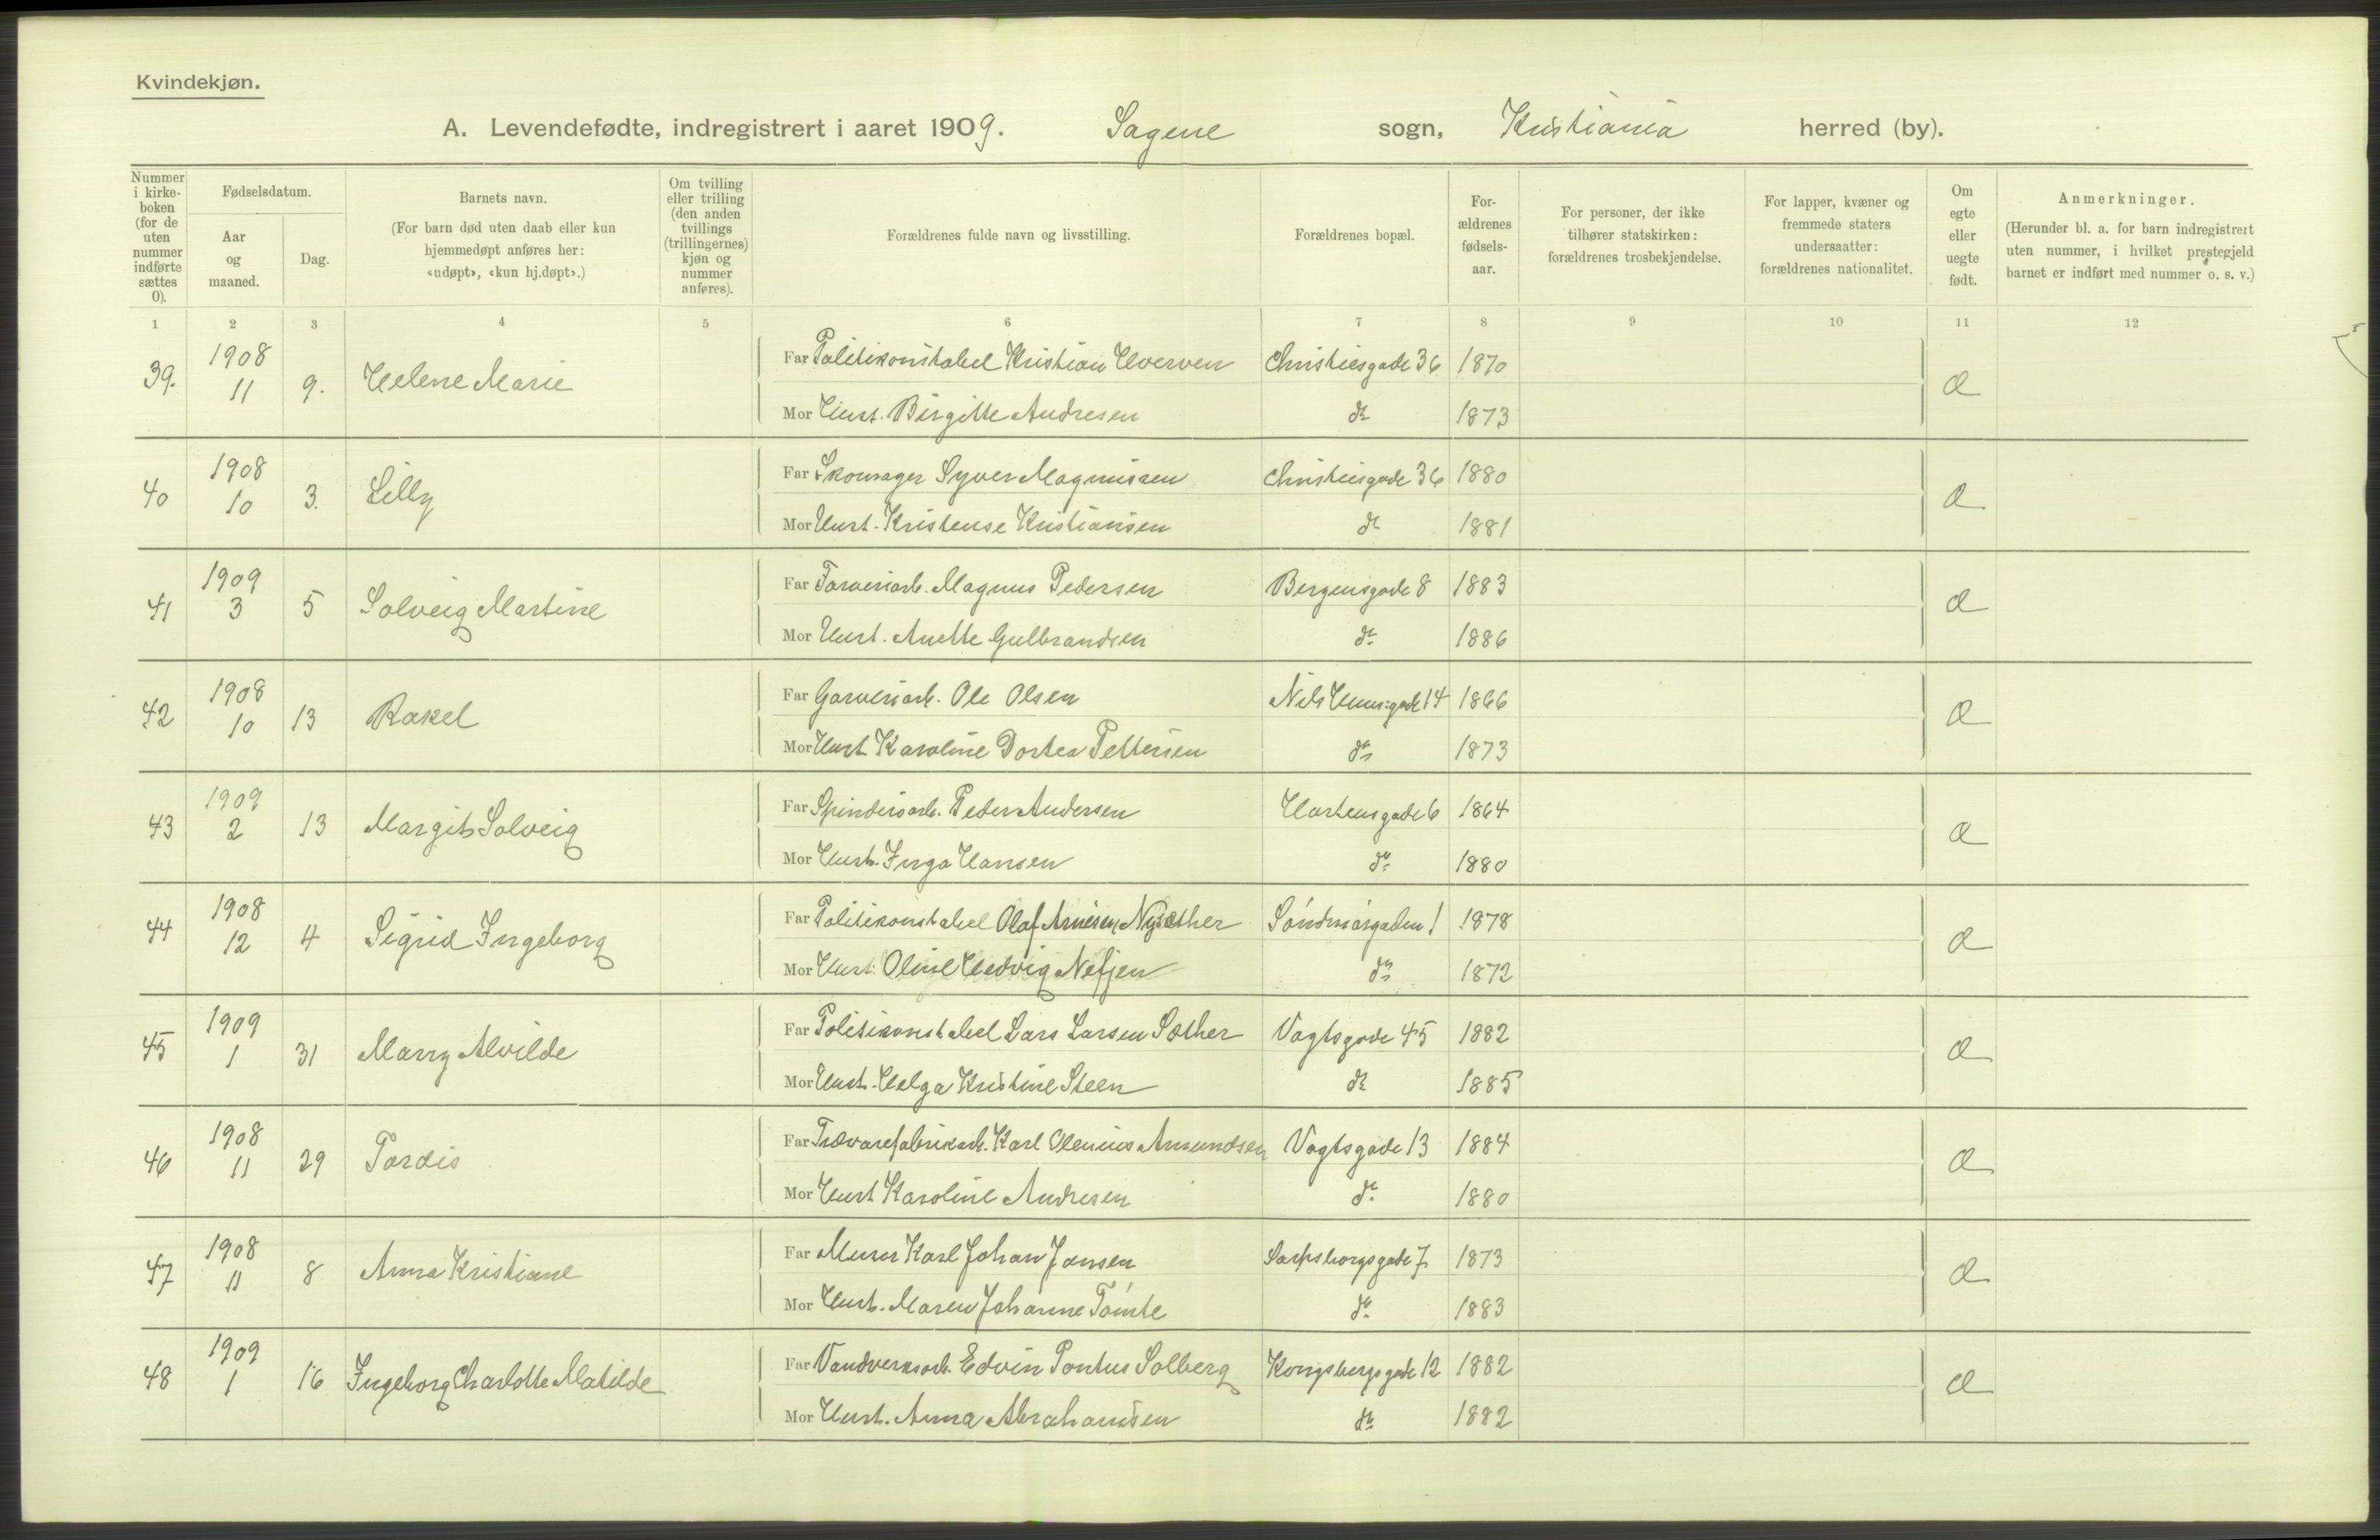 Kvindekjøn.
A. Levendefødte, indregistrert i aaret 1909. Sagene sogn, Kristiania herred (by).
Nummer i kirkeboken (for de uten nummer indførte sættes 0).
Fødselsdatum.
Aar og maaned.
Dag.
Barnets navn.
(For barn død uten daab eller kun hjemmedøpt anføres her: «udøpt», «kun hj.døpt».)
Om tvilling eller trilling (den anden tvillings (trillingernes) kjøn og nummer anføres).
Forældrenes fulde navn og livsstilling.
Forældrenes bopæl.
Forældrenes fødselsaar.
For personer, der ikke tilhører statskirken: forældrenes trosbekjendelse.
For lapper, kvæner og fremmede staters undersaatter: forældrenes nationalitet.
Om egte eller uegte født.
Anmerkninger.
(Herunder bl. a. for barn indregistrert uten nummer, i hvilket prestegjeld barnet er indført med nummer o. s. v.)
1 2 3 4 5 6 7 8 9 10 11 12
39. 1908 11 9. Helene Marie
Far Politikonstabel Kristian Hverven Christiesgade 36 1870
Mor Hust. Birgitte Andresen do 1873
Æ
40 1908 10 3. Lilly
Far Skomager Syver Magnussen Christiesgade 36 1880
Mor Hust. Kristense Kristiansen do 1881
Æ
41 1909 3 5 Solveig Martine
Far Farveriarb. Magnus Pedersen Bergensgade 8 1883
Mor Hust. Anette Gulbrandsen do 1886
Æ
42 1908 10 13 Rakel
Far Garveriarb. Ole Olsen Nils Huusgade 14 1866
Mor Hust. Karoline Dortea Pettersen do 1873
Æ
43 1909 2 13 Margit Solveig
Far Spinderiarb. Peder Andersen Harkensgade 6 1864
Mor Hust. Inga Hansen do 1880
Æ
44 1908 12 4 Sigrid Ingeborg
Far Politikonstabel Olaf Arnesen Nysæther Søndmørgaden 1 1878
Mor Hust. Oline Hedvig Nefjen do 1872
Æ
45 1909 1 31 Marry Alvilde
Far Politikonstabel Lars Larsen Sæther Vogtsgade 45 1882
Mor Hust. Helga Kristine Steen do 1885
Æ
46 1908 11 29 Tordis
Far Trævarefabrikarb. Karl Olenius Amundsen Vogtsgade 13 1884
Mor Hust Karoline Andresen do 1880
Æ
47 1908 11 8 Anna Kristiane
Far Murer Karl Johan Jansen Sarpsborgsgade 7. 1873
Mor Hust. Maren Johanne Tømte do 1883
Æ
48 1909 1 16 Ingeborg Charlotte Matilde
Far Vandverksarb. Edvin Pontus Solberg Kongsbergsgade 12 1882
Mor Hust. Anna Abrahamsen do 1882
Æ